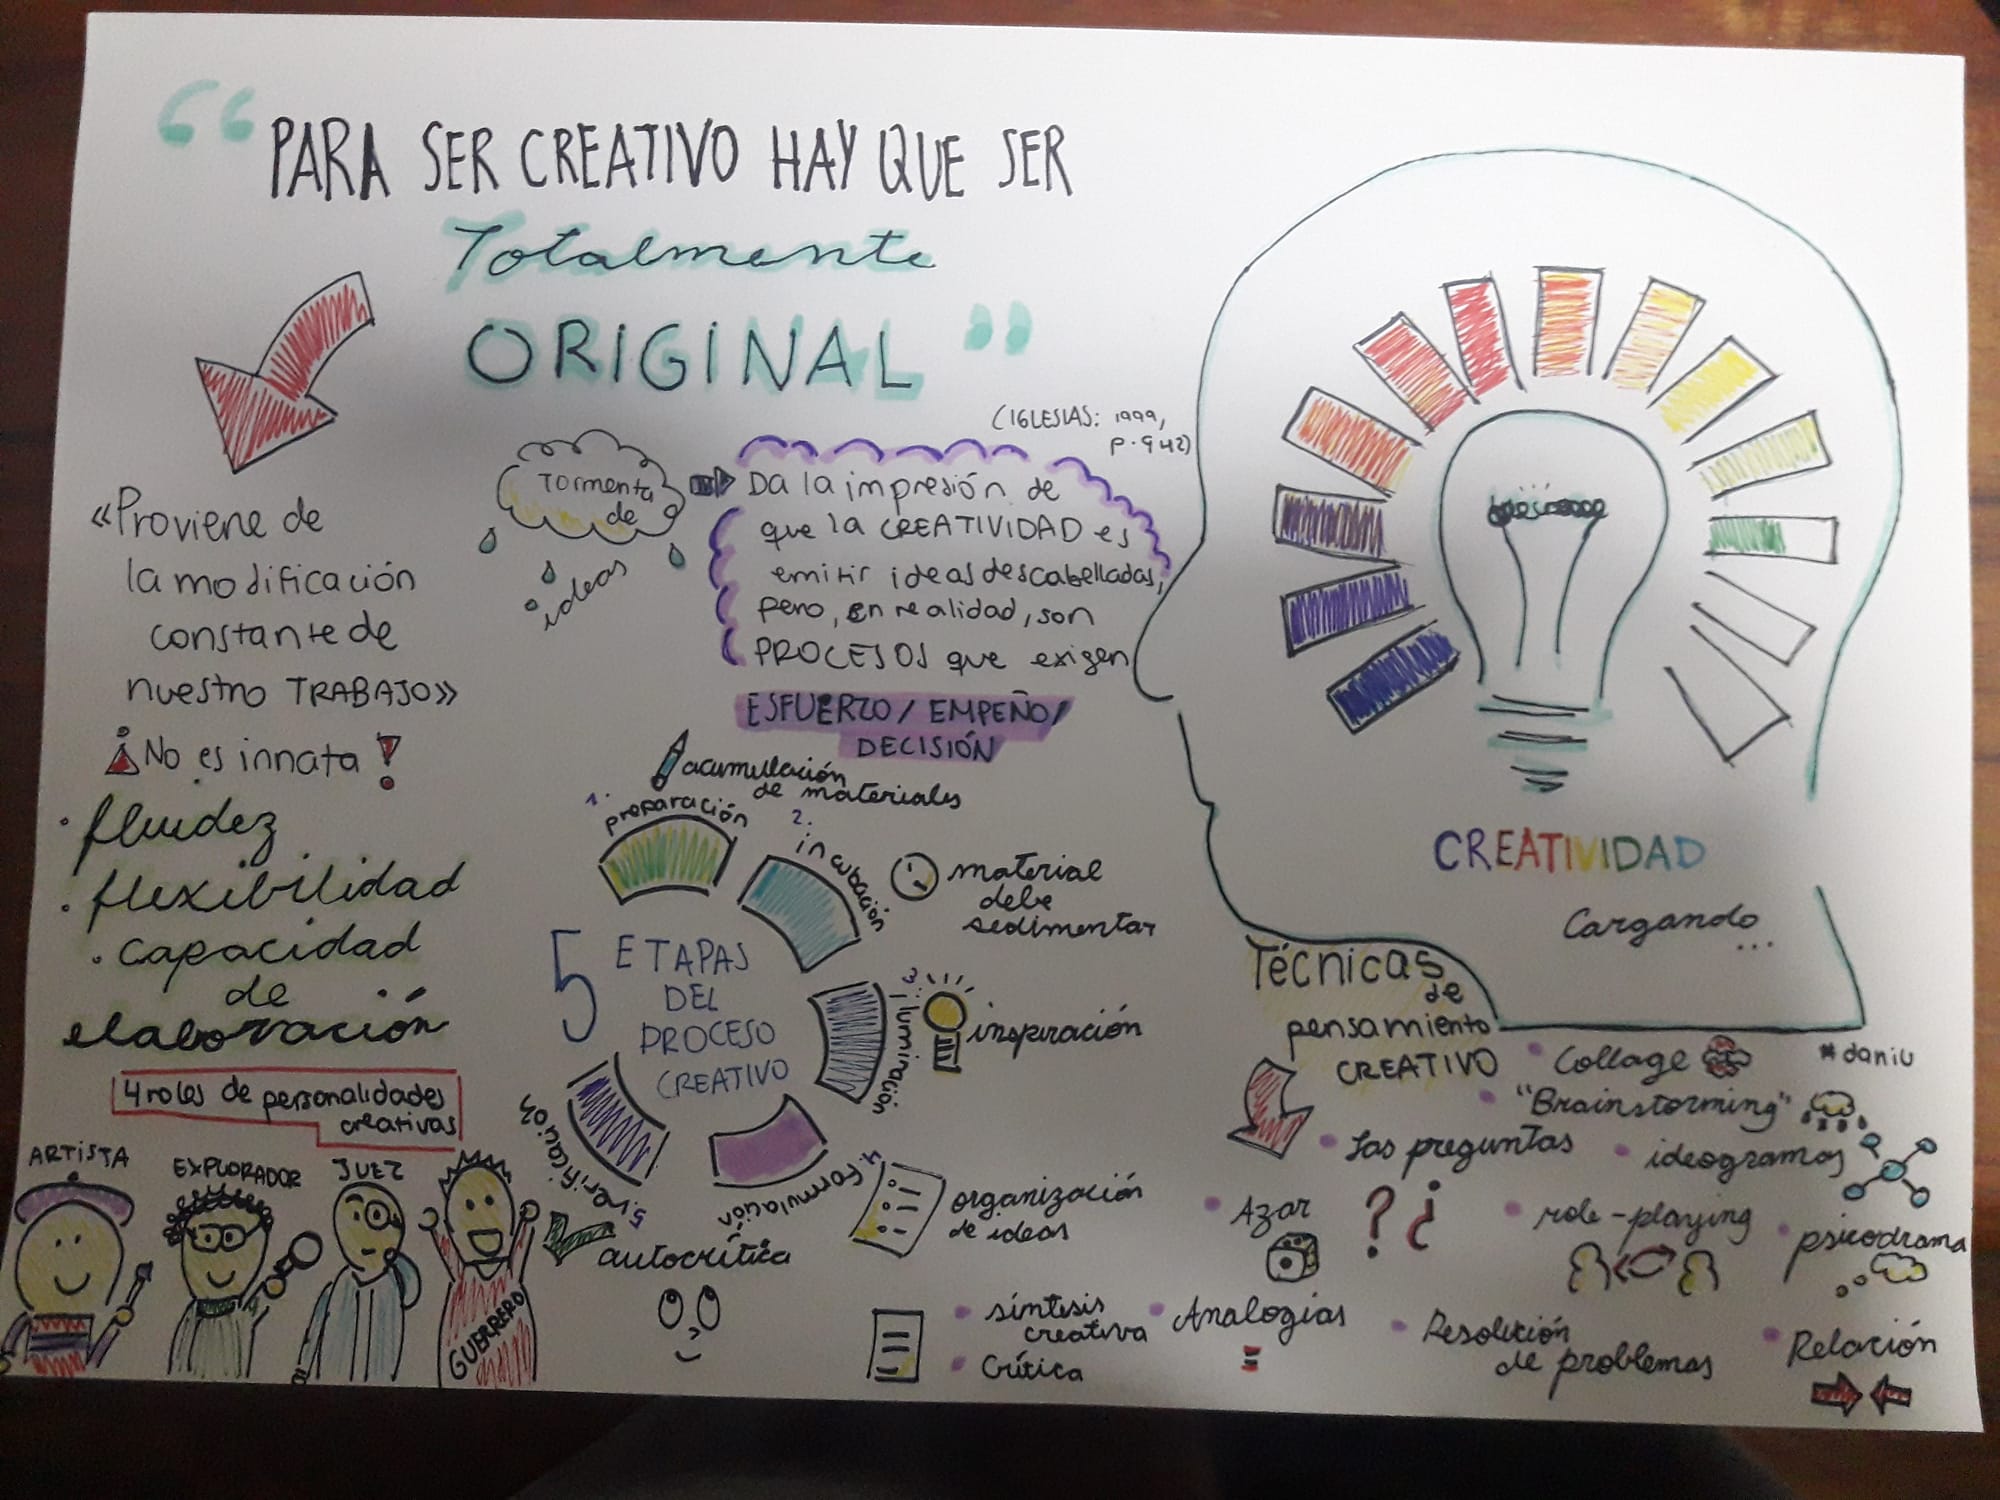 “PARA SER CREATIVO HAY QUE SER
Totalmente
ORIGINAL”
(IGLESIAS: 1999,
p. 942)
«Proviene de
la modificación
constante de
nuestro TRABAJO»
¡No es innata!
· fluidez
· flexibilidad
· capacidad
de
elaboración
Tormenta
de
ideas
Da la impresión de
que la CREATIVIDAD es
emitir ideas descabelladas,
pero, en realidad, son
PROCESOS que exigen
ESFUERZO / EMPEÑO /
DECISIÓN
5 ETAPAS
DEL
PROCESO
CREATIVO
1. preparación
acumulación
de materiales
2. incubación
material
debe
sedimentar
3. iluminación
inspiración
4. Formulación
organización
de ideas
5. verificación
autocrítica
síntesis
creativa
Crítica
4 roles de personalidades
creativas
ARTISTA
EXPLORADOR
JUEZ
GUERRERO
CREATIVIDAD
Cargando
...
Técnicas
de
pensamiento
CREATIVO
Collage
#daniu
"Brainstorming"
Las preguntas
? ¿
ideogramas
Azar
role-playing
psicodrama
Analogías
=
Resolución
de problemas
Relación